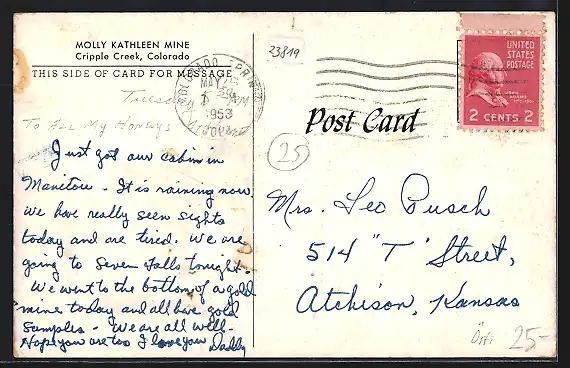 MOLLY KATHLEEN MINE
Cripple Creek, Colorado
THIS SIDE OF CARD FOR MESSAGE
Tuesday PM
To All My Honeys
Just got our cabin in
Manitou - It is raining now,
We have really seen sights
today and are tired. We are
going to Seven Falls tonight.
We went to the bottom of a gold
mine today and all have gold
samples - We are all well -
Hope you are too I love you Daddy
23819
COLORADO SPRINGS
1953
25
Post Card
UNITED
STATES
POSTAGE
JOHN
ADAMS
2 CENTS 2
Mrs. Leo Busch
514 "T" Street,
Atchison, Kansas
25-